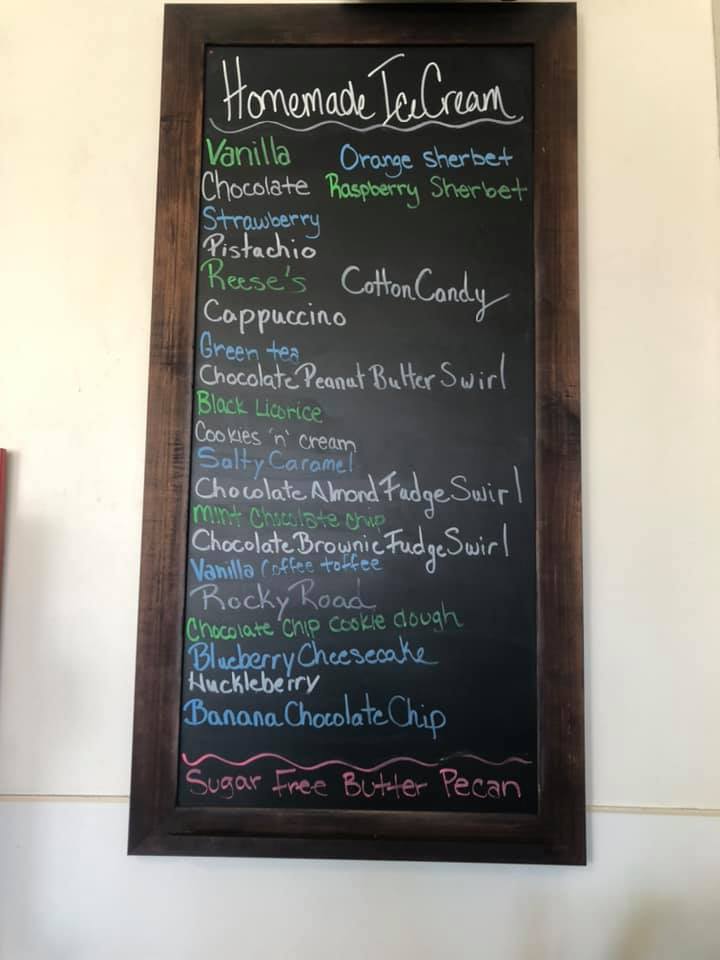 Homemade Ice Cream
Vanilla Orange sherbet
Chocolate Raspberry Sherbet
Strawberry
Pistachio
Reese's Cotton Candy
Cappuccino
Green tea
Chocolate Peanut Butter Swirl
Black Licorice
Cookies 'n' cream
Salty Caramel
Chocolate Almond Fudge Swirl
Mint Chocolate chip
Chocolate Brownie Fudge Swirl
Vanilla Coffee toffee
Rocky Road
Chocolate Chip cookie dough
Blueberry Cheesecake
Huckleberry
Banana Chocolate Chip
Sugar Free Butter Pecan